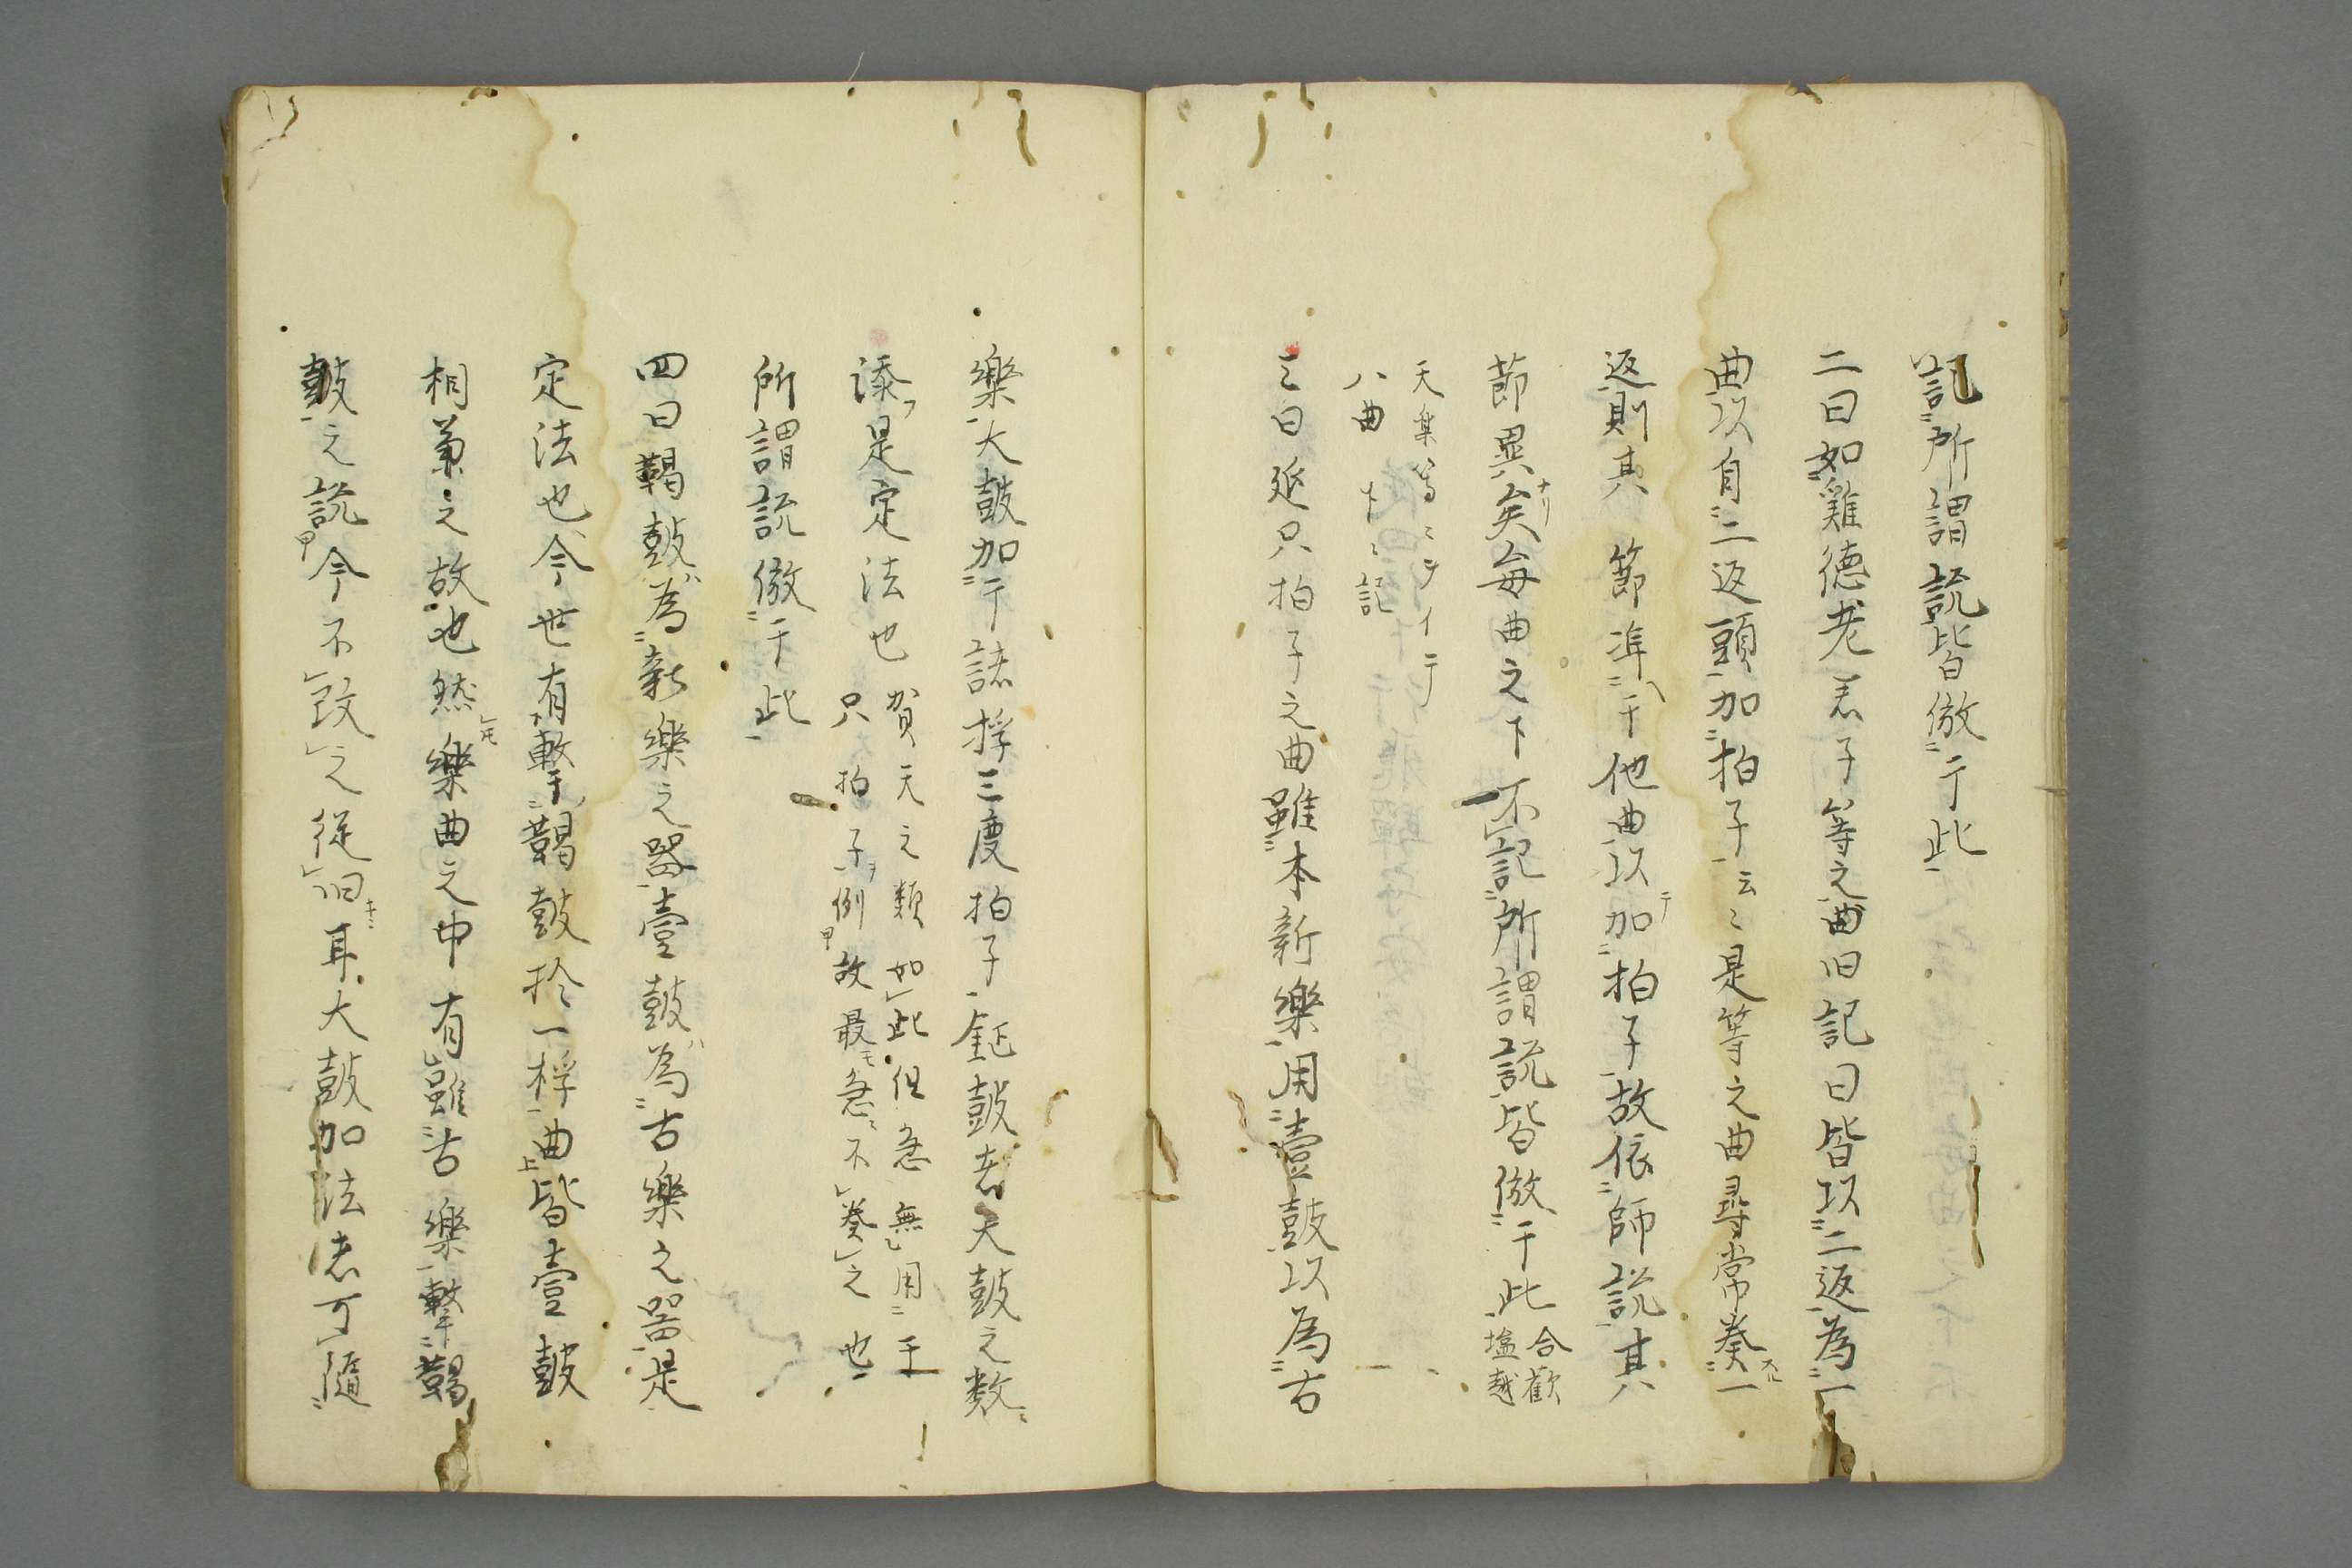 記所謂説皆倣于此
二曰如雞德老君子等之曲旧記曰皆以二返為一
曲以自二返頭加拍子云〻是等之曲尋常奏一
返則其節準于他曲以加拍子故依師説其
節異矣毎曲之下不記所謂説皆倣于此合歓塩越
天楽等ニヲイテ
八曲下ニ記
三曰延只拍子之曲雖本新樂用壹鼓以為古
樂大鼓加于諸桴三度拍子鉦鼓者大鼓之数
添是定法也賀天之類如此但急無用于
只拍子例故最急不奏之也
所謂説倣于此
四曰鞨鼓為新樂之器壹鼓為古樂之器是
定法也今世有擊于鞨鼓於一桴曲皆壹鼓
相兼之故也然樂曲之中有雖古樂擊于鞨
鼓之説今不改之従旧耳大鼓加法者可随